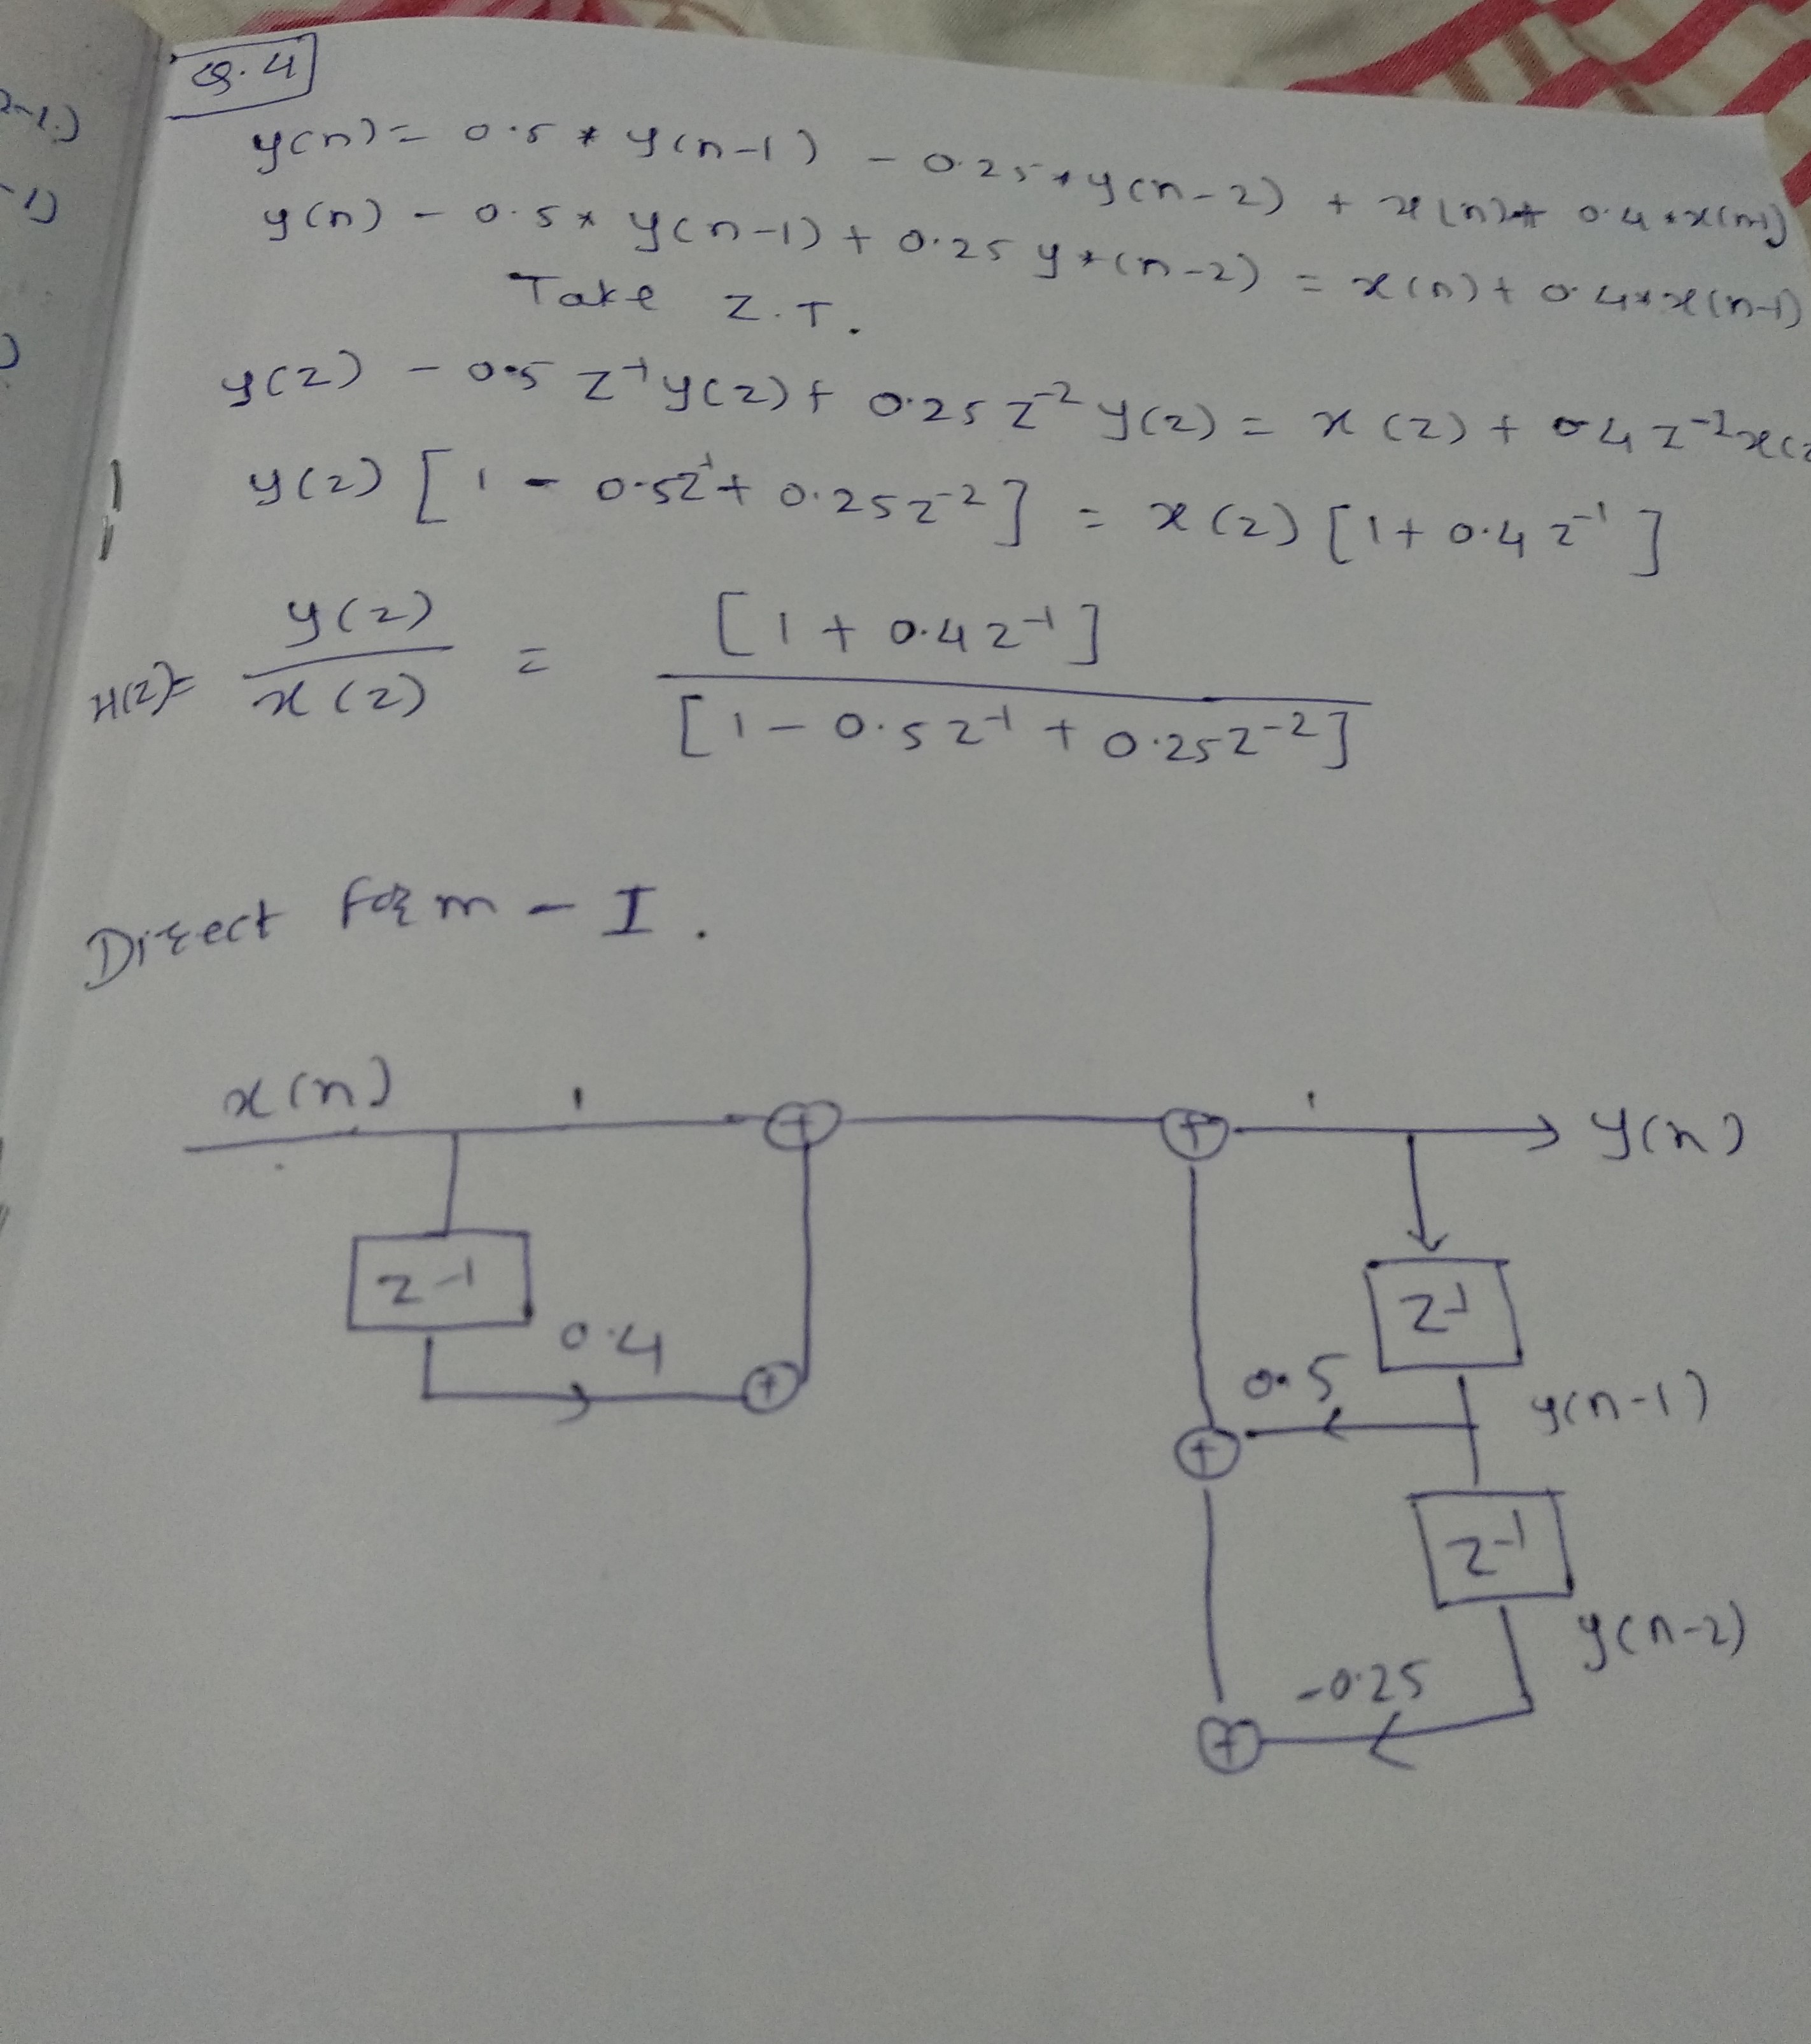 2-1.)
-1)
)
Q.4
y(n) = 0.5 * y(n-1) - 0.25 * y(n-2) + x(n) + 0.4 * x(n-1)
y(n) - 0.5 * y(n-1) + 0.25 y * (n-2) = x(n) + 0.4 * x(n-1)
Take Z.T.
y(z) - 0.5 z⁻¹ y(z) + 0.25 z⁻² y(z) = x(z) + 0.4 z⁻¹ x(z
y(z) [ 1 - 0.5z⁻¹ + 0.25z⁻² ] = x(z) [ 1 + 0.4 z⁻¹ ]
H(z) = y(z) / x(z) = [ 1 + 0.4 z⁻¹ ] / [ 1 - 0.5 z⁻¹ + 0.25 z⁻² ]
Direct form - I .
x(n) 1 + + 1 y(n)
z⁻¹ z⁻¹
0.4 + 0.5 y(n-1)
+
z⁻¹
y(n-2)
-0.25
+